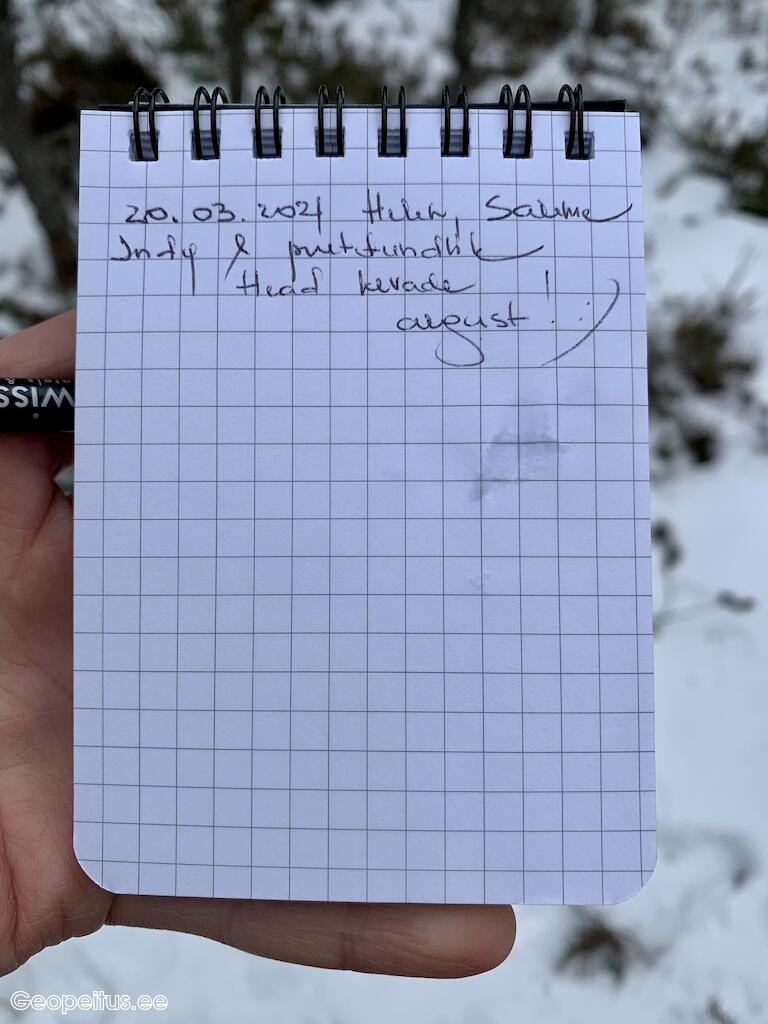 20.03.2021 Helen, Sakime
Indy & printsfundlik
Head kevade
august! :)
WISS
Geopeitus.ee